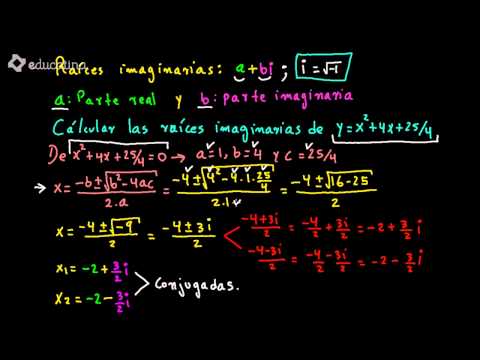 educatina
Raíces imaginarias: a+bi ; i=√-1
a: Parte real y b: parte imaginaria
Cálcular las raíces imaginarias de y=x²+4x+25/4
De x²+4x+25/4=0 → a=1, b=4 y c=25/4
→ x= -b±√b²-4ac / 2.a = -4±√4²-4.1.25/4 / 2.1 = -4±√16-25 / 2
x= -4±√-9 / 2 = -4±3i / 2
-4+3i / 2 = -4/2 + 3i/2 = -2+3/2 i
-4-3i / 2 = -4/2 - 3i/2 = -2-3/2 i
x₁= -2+3/2 i
x₂= -2-3/2 i
Conjugadas.